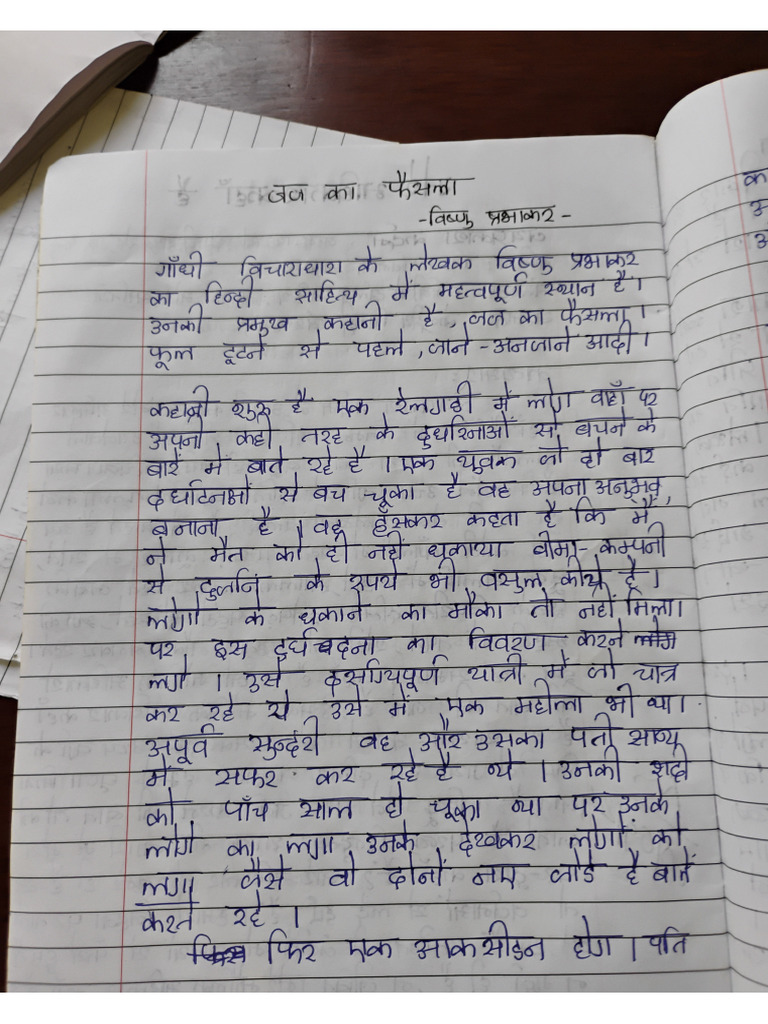 जज का फैसला
-विष्णु प्रभाकर-
गाँधी विचाराधारा के लेखक विष्णु प्रभाकर
का हिन्दी साहित्य में महत्वपूर्ण स्थान है।
उनकी प्रमुख कहानी है, जज का फैसला।
फूल टूटने से पहले, जाने-अनजाने आदी।
कहानी शुरू है एक रेलगाडी में लोग वहाँ पर
अपनी कही तरह के दुर्घारनाओं से बचने के
बारे में बाते रहे है। एक युवक जो दो बार
दर्घाटनाओं से बच चूका है वह अपना अनुभव
बनाना है। वह हँसकर कहता है कि मैं
ने मैत को ही नहीं धकाया बीमा-कम्पनी
से के रुपये भी वसुल कीये है।
लोगो के धकाने का मौका तो नहीं मिला।
पर इस का विवरण करने
लगे। उसे यात्री में जो यात्र
कर रहे थे उसे में एक महीला भी था।
अपूर्व सुन्दरी वह और उसका पती साथ
में सफर कर रहे है थे। उनकी शादी
को पाँच साल हो चूका था पर उनके
लोगो का लगा उनके, देखकर लोगों को
लगा जैसे वो दोनों नए जोडे है बातें
करते रहे।
फिर एक आकसीडन होग। पति
क
अ